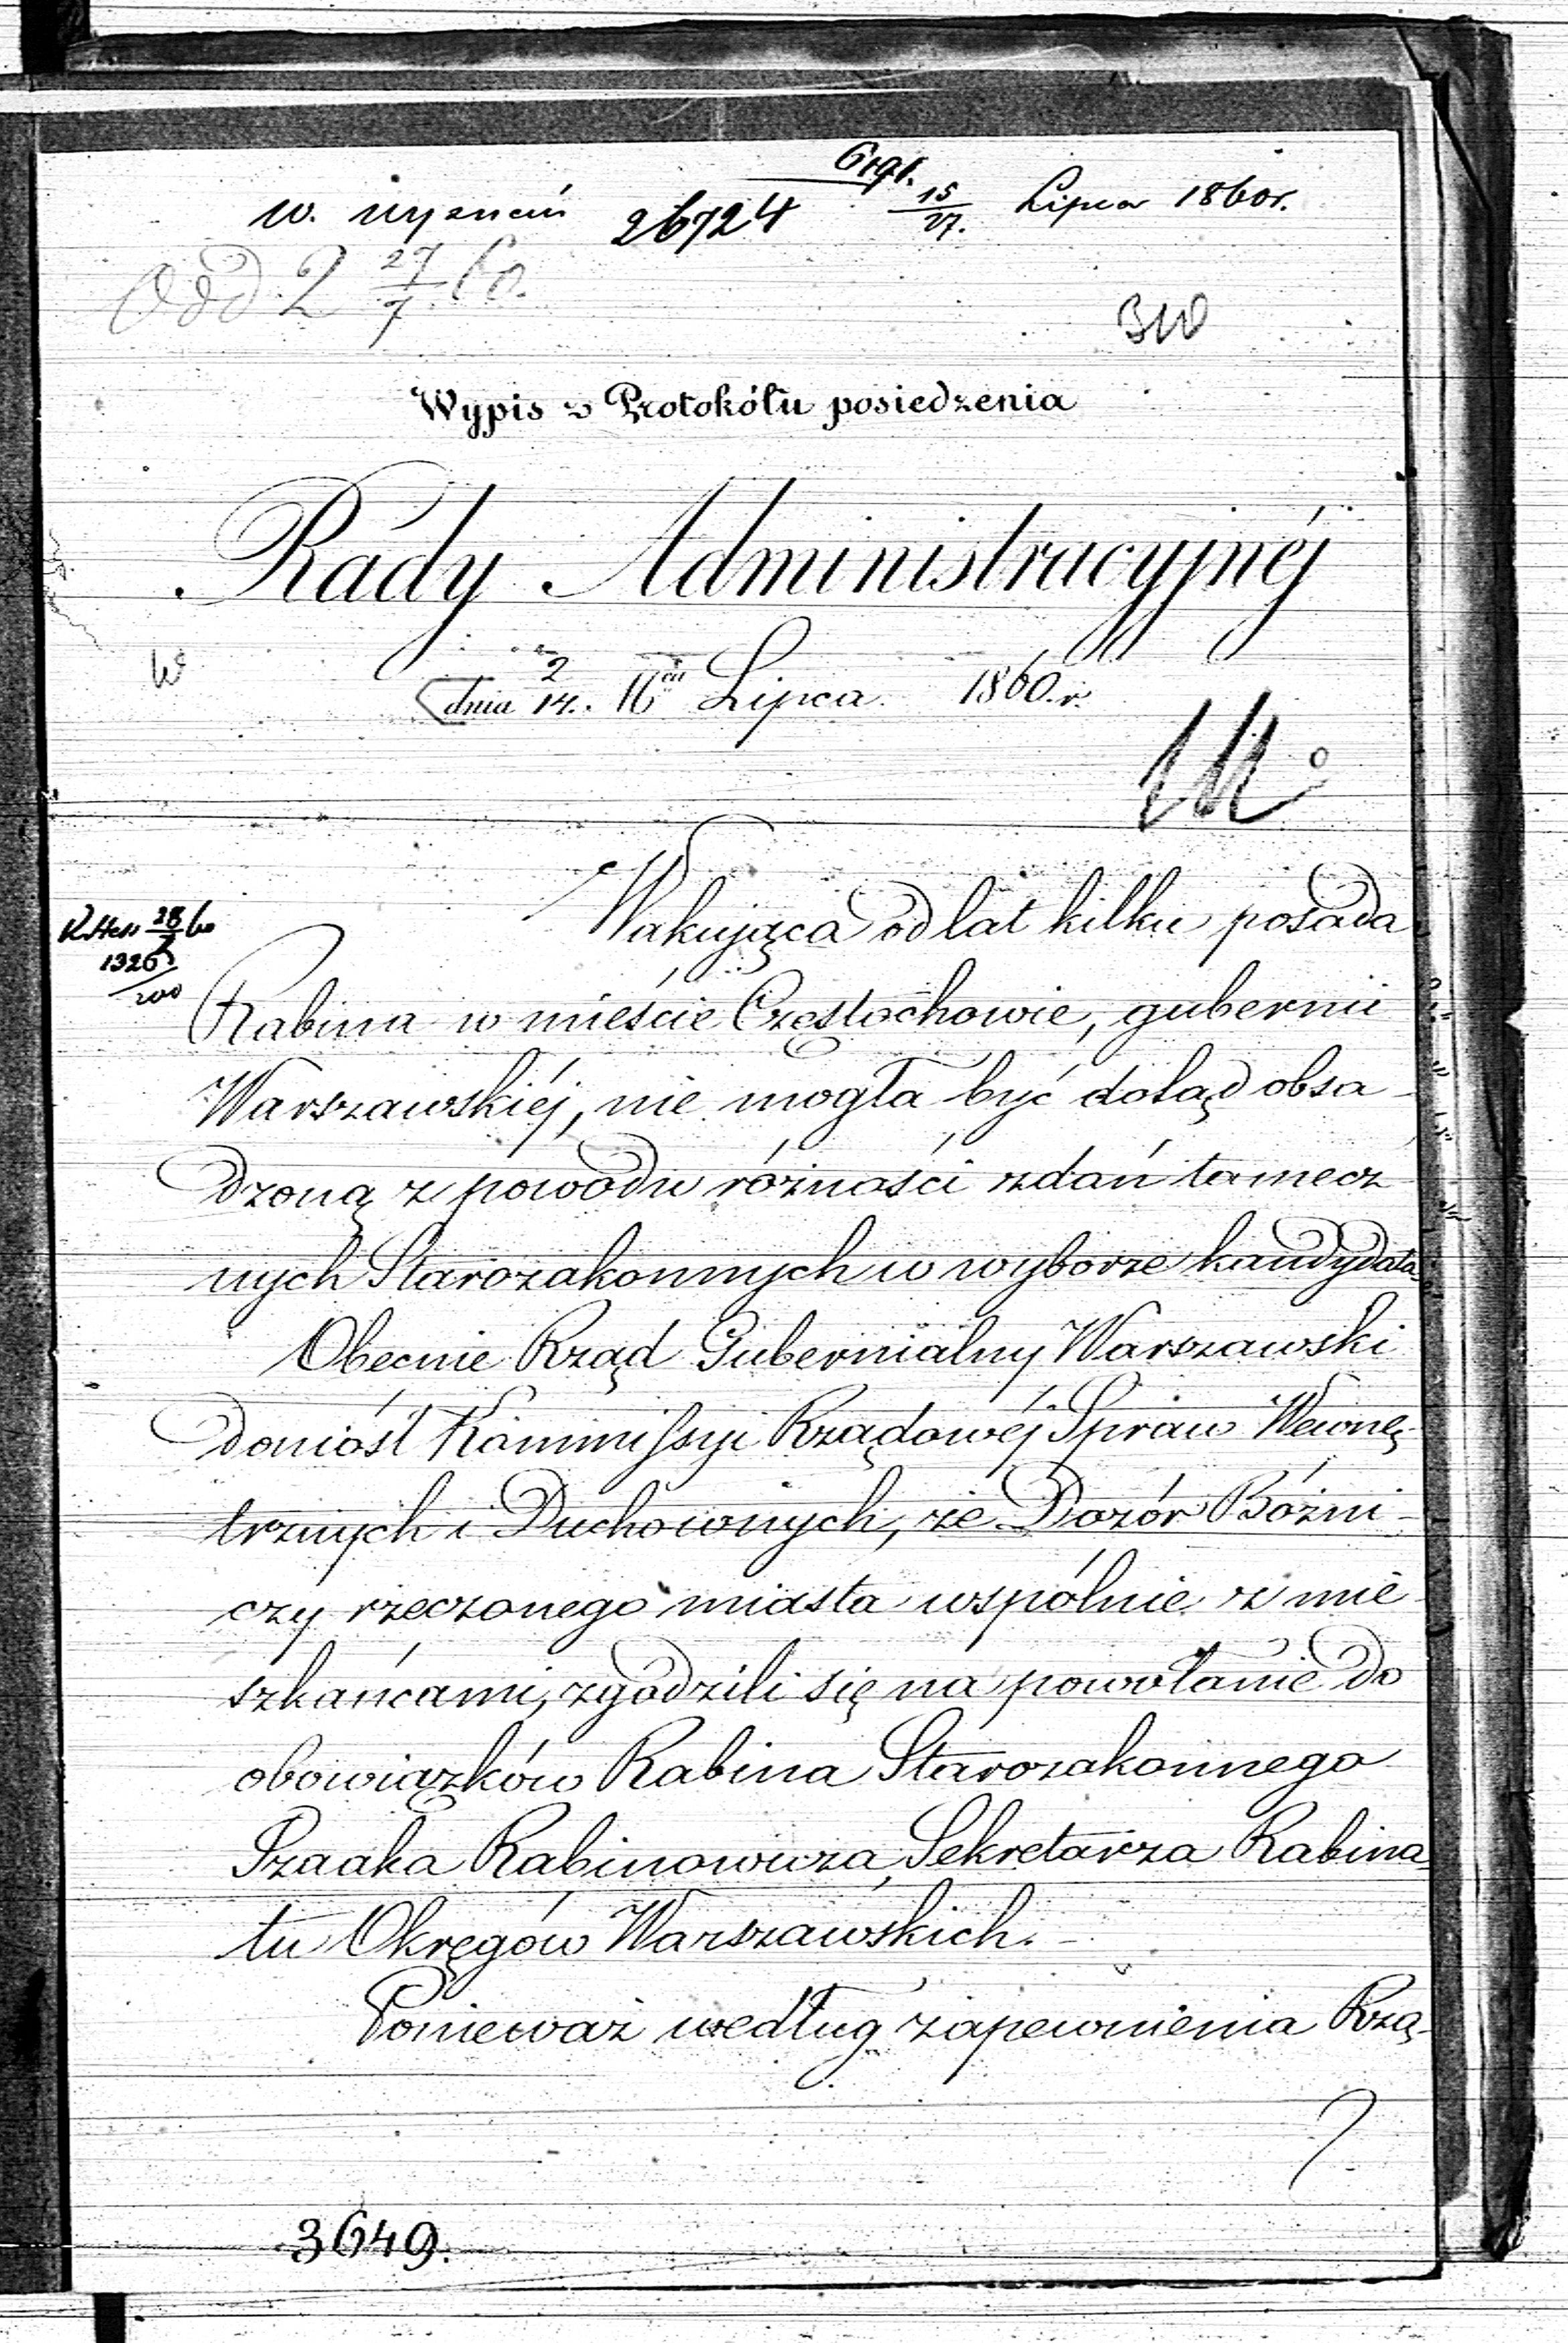 w. wyznań 26724 15/27. Lipca 1860r.
Odd 2 27/7 60.
Wypis z Protokółu posiedzenia
Rady Administracyjnéj
dnia 2/14. Lipca 1860.r.
28/7 60
1326
200
Wakująca od lat kilku posada
Rabina w mieście Częstochowie, gubernii
Warszawskiéj, nie mogła być dotąd obsa-
dzoną z powodu różności zdań tamecz
nych Starozakonnych w wyborze kandydata.
Obecnie Rząd Gubernialny Warszawski
doniósł Kommissyi Rządowéj Spraw Wewnę-
trznych i Duchownych, że Dozór Bóżni-
czy rzeczonego miasta wspólnie z mie
szkańcami, zgodzili się na powołanie do
obowiązków Rabina Starozakonnego
Izaaka Rabinowicza, Sekretarza Rabina-
tu Okręgów Warszawskich.-
Ponieważ według zapewnienia Rzą-
3649.